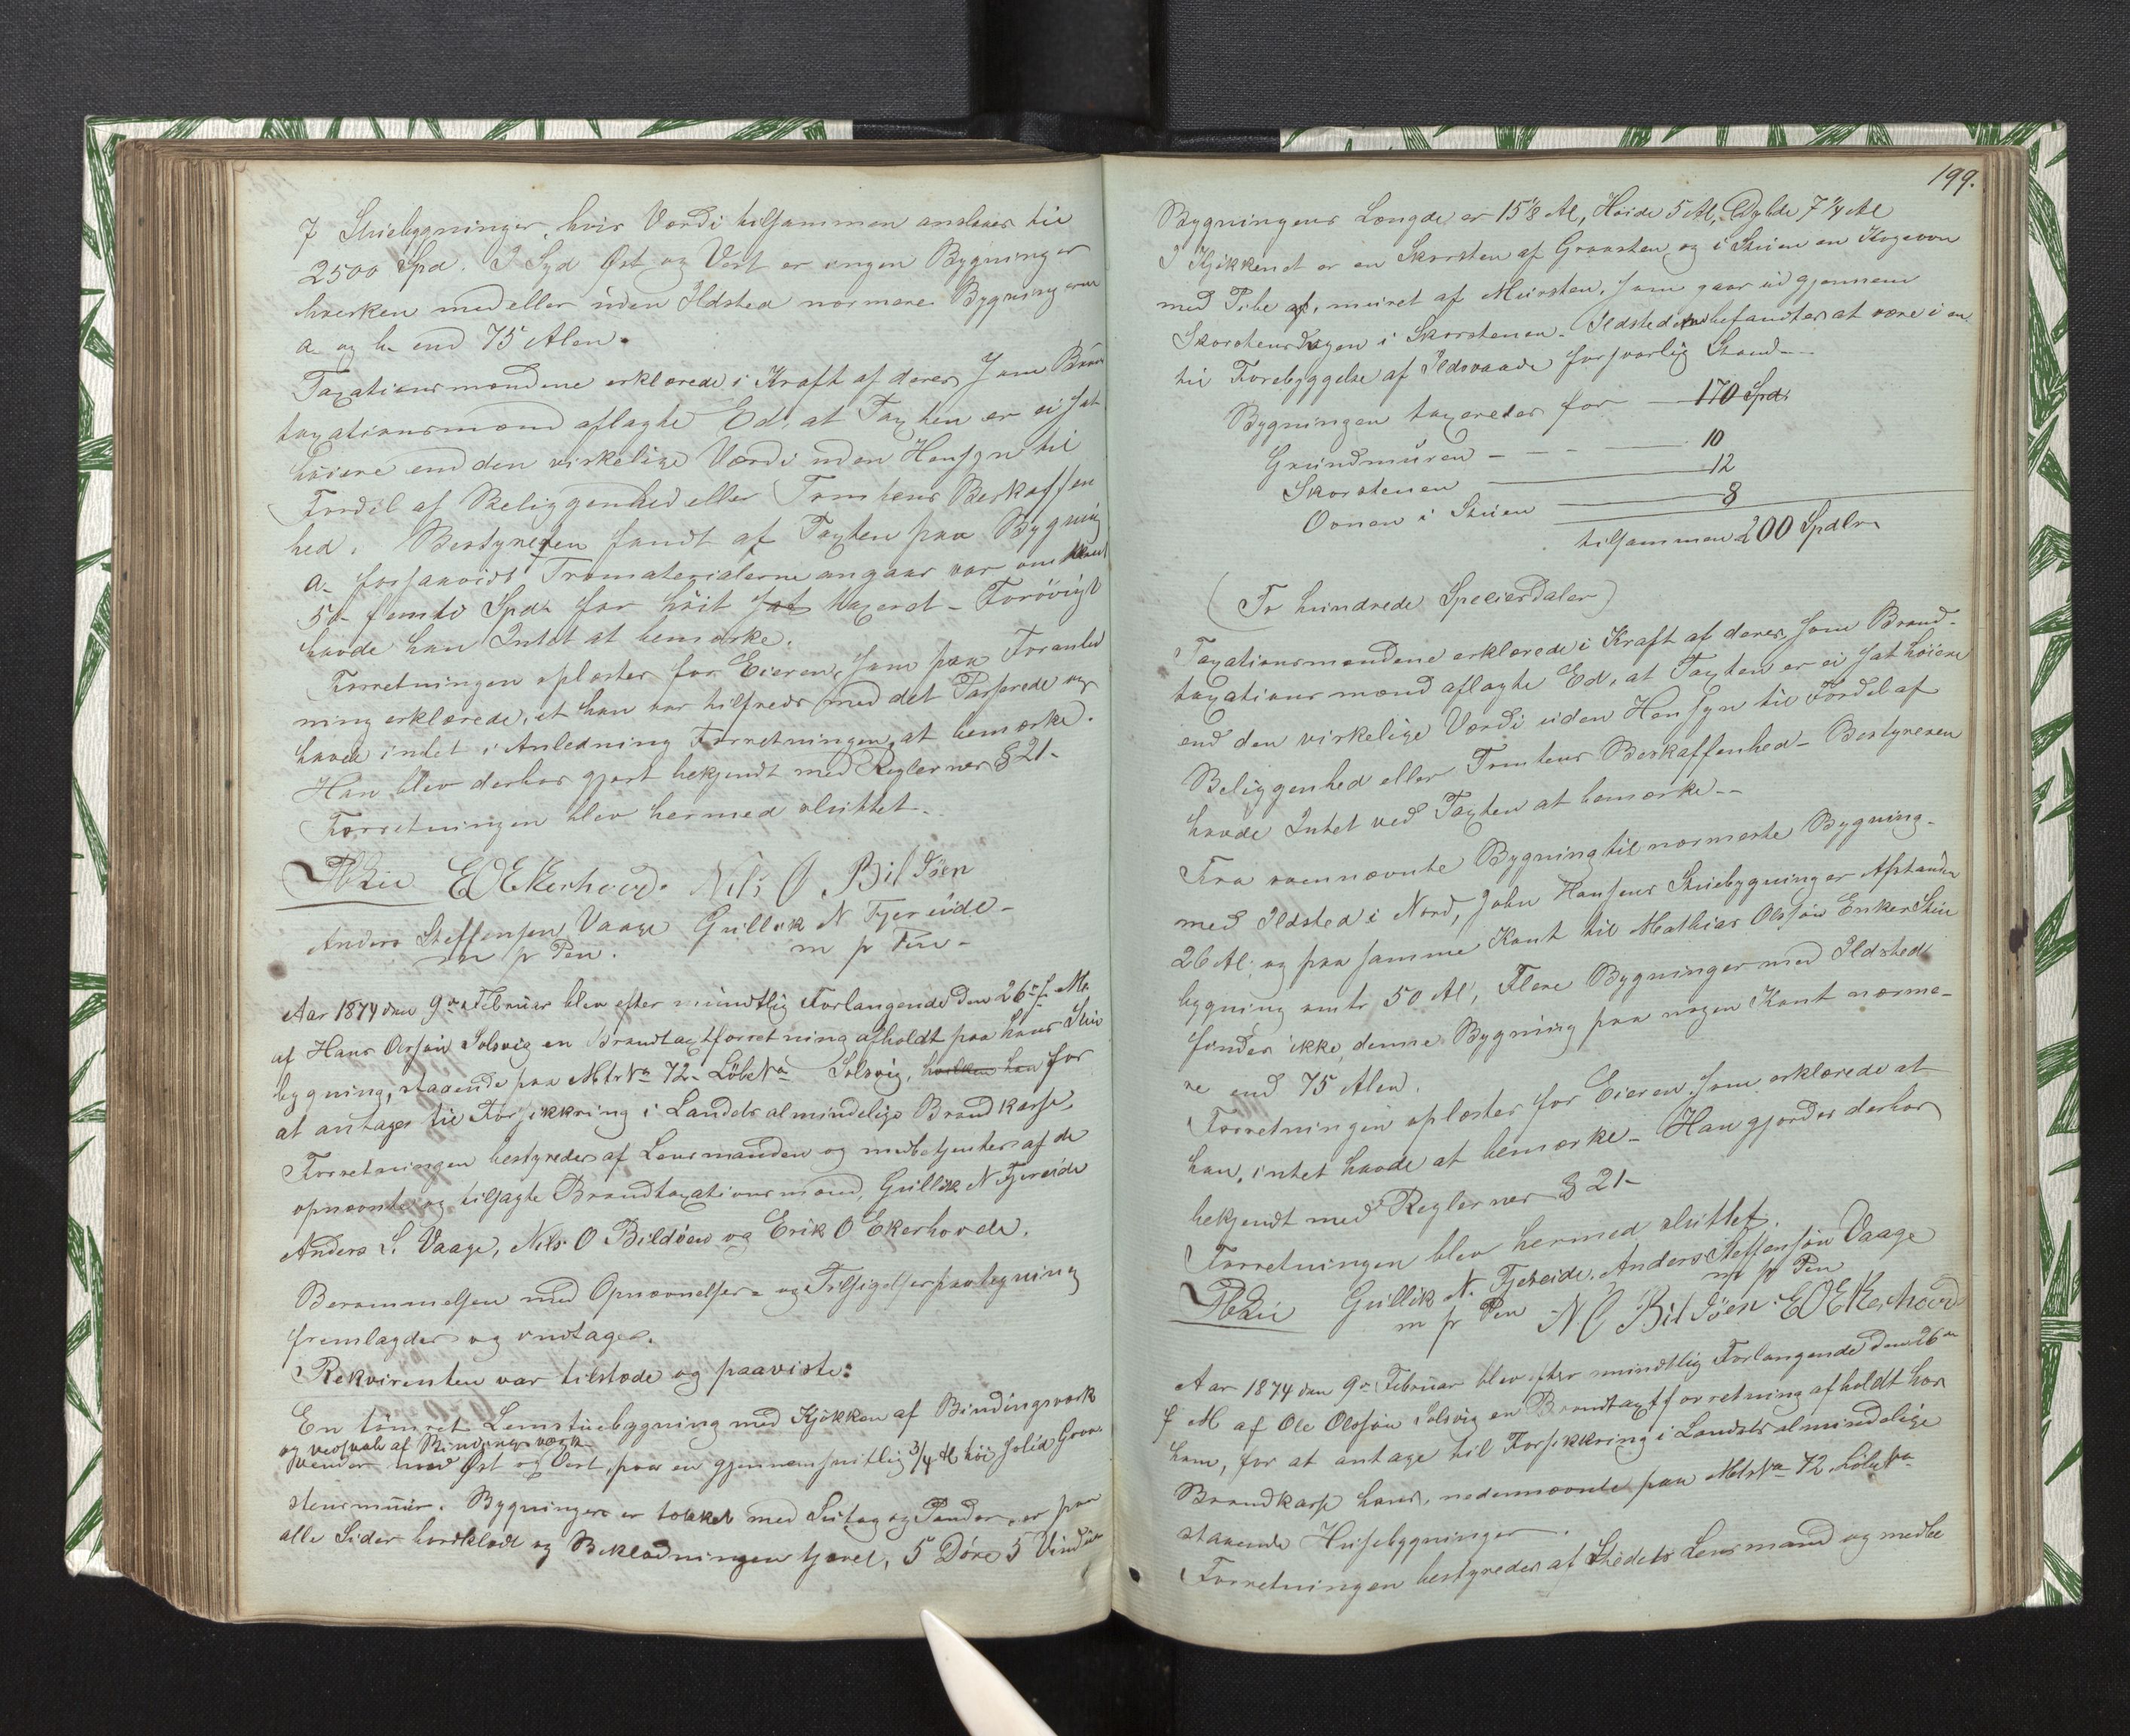 7 Stuebygninger, hvis Værdi tilsammen ansloges til
2500 Spd. I Syd Øst og Vest er ingen Bygninger
hverken med eller uden Ildsted nærmere Bygningerne
a. og b. end 75 Alen.
Taxationsmændene erklærede i Kraft af deres som Brand
taxationsmænd aflagte Ed, at Taxten er ei sat
høiere end den virkelige Værdi uden Hensyn til
Fordel af Beliggenhed eller Tomtens Beskaffen
hed. Bestyreren fandt at Taxten paa Bygning
a. forsaavidt Træmaterialerne angaar var omtrent
50 femti Spd. for høit sat taxeret - Forøvrigt
havde han Intet at bemærke.
Forretningen oplæstes for Eieren, som paa Foranled
ning erklærede, at han var tilfreds med det Passerede og
havde intet i Anledning Forretningen at bemærke.
Han blev derhos gjort bekjendt med Reglernes § 21.
Forretningen blev hermed sluttet.
E O Ekerhovd. Nils O Bildöen
Anders Steffensen Vaage Gullik N Fjereide
m p Pen. m p Pen
Aar 1874 den 9de Februar blev efter mundtlig Forlangende den 26de f. M.
af Hans Olssøn Solsvig en Brandtaxtforretning afholdt paa hans Stue
bygning, staaende paa Mtr No 72. Løbe No Solsvig, for
at antages til Forsikkring i Landets almindelige Brandkasse.
Forretningen bestyredes af Lensmanden og medbetjentes af de
opnævnte og tilsagte Brandtaxationsmænd, Gullik N Fjereide
Anders S. Vaage, Nils O Bildøen og Erik O Ekerhovde.
Berammelsen med Opnævnelses- og Tilsigelsespaategning
fremlagdes og modtages.
Rekvirenten var tilstede og paaviste:
En tømret Lemstuebygning med Kjøkken af Bindingsværk
og vedsval af Bindingsværk
vender mod Øst og Vest, paa en gjennemsnitlig 3/4 Al høi solid Graa
stensmuur. Bygningen er tækket med Sutag og Pander, er paa
alle Sider bordklædt og Beklædningen tjæret, 5 Døre 5 Vinduer
199.
Bygningens Længde er 15 1/8 Al, Høide 5 Al, Dybde 7 1/4 Al
I Kjøkkenet er en Skorsten af Graasten og i Stuen en Kogeovn
med Pibe af, muret af Mursten, som gaar ud gjennem
Skorstensdragen i Skorstenen. Ildstederne befandtes at være i en
til Forebyggelse af Ildsvaade forsvarlig Stand.
Bygningen taxeredes for 170 Spd.
Grundmuren - - - 10
Skorstenen 12
Ovnen i Stuen 8
tilsammen 200 Spdlr
(To hundrede Speciesdaler)
Taxationsmændene erklærede i Kraft af deres som Brand-
taxationsmænd aflagte Ed, at Taxten er ei sat høiere
end den virkelige Værdi uden Hensyn til Fordel af
Beliggenhed eller Tomtens Beskaffenhed - Bestyreren
havde Intet ved Taxten at bemærke.
Fra omnævnte Bygning til nærmeste Bygning
med Ildsted i Nord, John Hansens Stuebygning er Afstanden
26 Al. og paa samme Kant til Mathias Olssøns Enkes Stue
bygning omtr 50 Al, Flere Bygninger med Ildsted
findes ikke denne Bygning paa nogen Kant nærme-
re end 75 Alen.
Forretningen oplæstes for Eieren, som erklærede at
han, intet havde at bemærke - Han gjordes derhos
bekjendt med Reglernes § 21.
Forretningen blev hermed sluttet.
Gullik N. Fjereide. Anders Steffensøn Vaage
m p Pen m p Pen
N. O Bildöen. E O Ekerhovd
Aar 1874 den 9de Februar blev efter mundtlig Forlangende den 26de
f M af Ole Olssøn Solsvig en Brandtaxtforretning afholdt hos
ham, for at antage til Forsikkring i Landets almindelige
Brandkasse hans, nedennævnte paa Mtr No 72 Løbe No
staaende Husebygninger.
Forretningen bestyredes af Stedets Lensmand og medbe